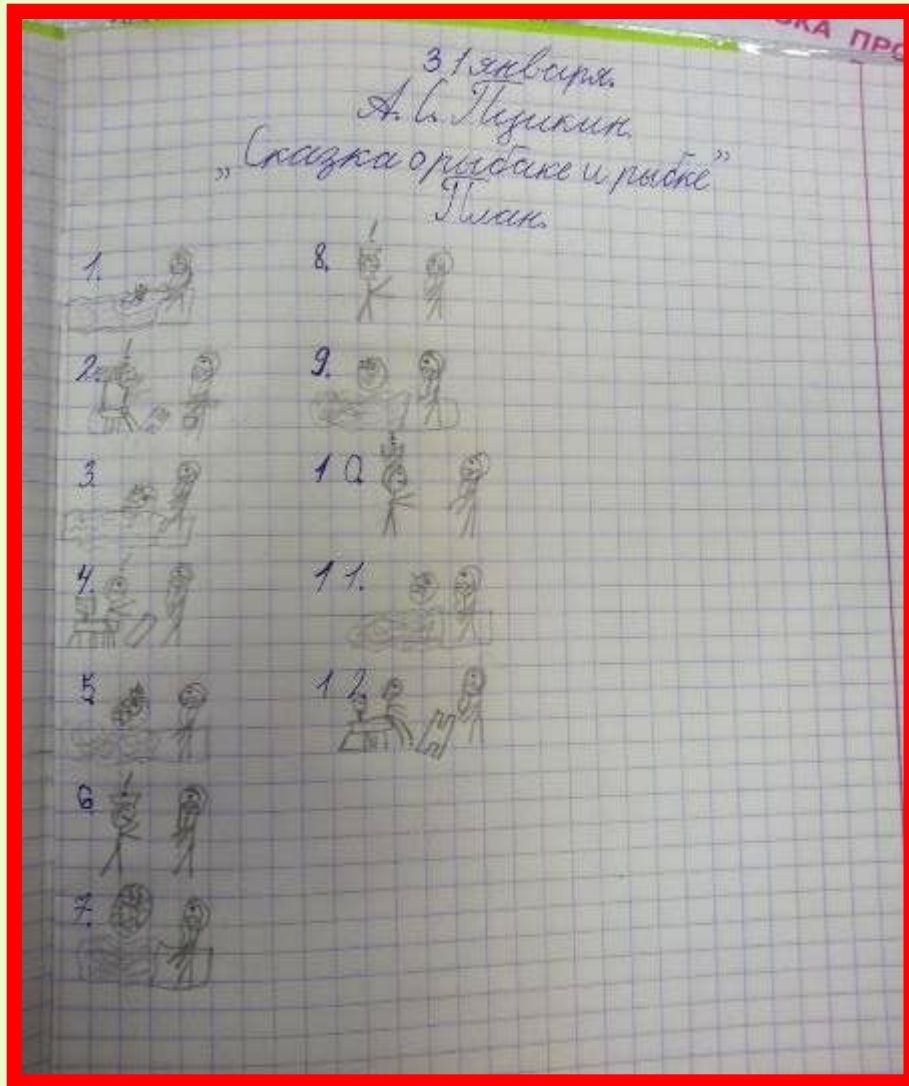 КА ПРО
31 января.
А. С. Пушкин.
„Сказка о рыбаке и рыбке”
План.
1.
2.
3.
4.
5.
6.
7.
8.
9.
10.
11.
12.